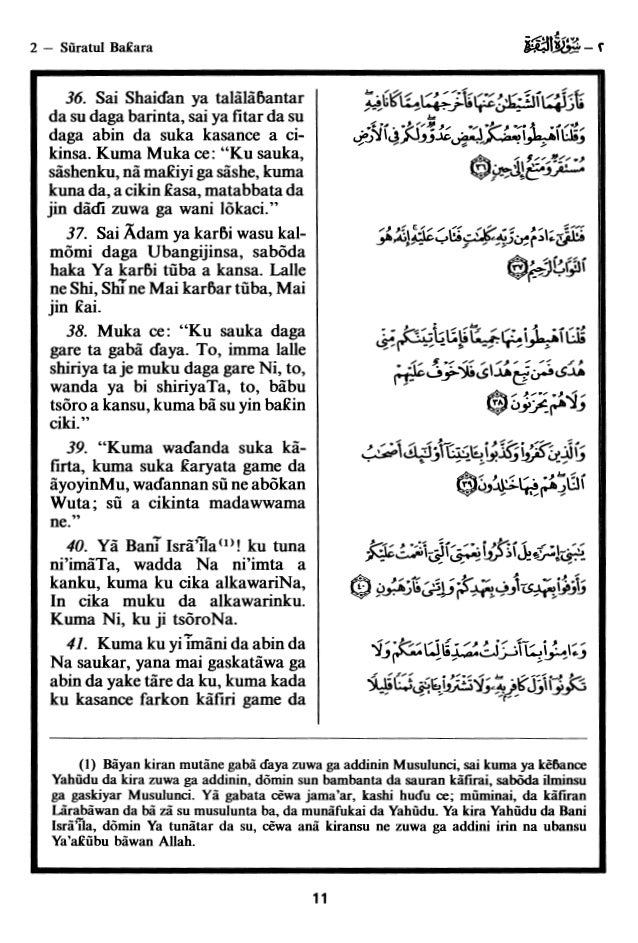 2 – Sũratul Baƙara
٢ – سُورَةُ البَقَرَة
36. Sai Shaiɗan ya talãlãɓantar
da su daga barinta, sai ya fitar da su
daga abin da suka kasance a ci-
kinsa. Kuma Muka ce: “Ku sauka,
sãshenku, nã maƙiyi ga sãshe, kuma
kuna da, a cikin ƙasa, matabbata da
jin dãɗi zuwa ga wani lõkaci.”
37. Sai Ãdam ya karɓi wasu kal-
mõmi daga Ubangijinsa, sabõda
haka Ya karɓi tũba a kansa. Lalle
ne Shi, Shĩ ne Mai karɓar tũba, Mai
jin ƙai.
38. Muka ce: “Ku sauka daga
gare ta gabã ɗaya. To, imma lalle
shiriya ta je muku daga gare Ni, to,
wanda ya bi shiriyaTa, to, bãbu
tsõro a kansu, kuma bã su yin baƙin
ciki.”
39. “Kuma waɗanda suka kã-
firta, kuma suka ƙaryata game da
ãyoyinMu, waɗannan sũ ne abõkan
Wuta; sũ a cikinta madawwama
ne.”
40. Yã Banĩ Isrã’ĩla⁽¹⁾! ku tuna
ni’imãTa, wadda Na ni’imta a
kanku, kuma ku cika alkawariNa,
In cika muku da alkawarinku.
Kuma Ni, ku ji tsõroNa.
41. Kuma ku yi ĩmãni da abin da
Na saukar, yana mai gaskatãwa ga
abin da yake tãre da ku, kuma kada
ku kasance farkon kãfiri game da
فَأَزَلَّهُمَا ٱلشَّيْطَٰنُ عَنْهَا فَأَخْرَجَهُمَا مِمَّا كَانَا فِيهِ ۖ
وَقُلْنَا ٱهْبِطُوا۟ بَعْضُكُمْ لِبَعْضٍ عَدُوٌّ ۖ وَلَكُمْ فِى ٱلْأَرْضِ
مُسْتَقَرٌّ وَمَتَٰعٌ إِلَىٰ حِينٍ ٣٦
فَتَلَقَّىٰٓ ءَادَمُ مِن رَّبِّهِۦ كَلِمَٰتٍ فَتَابَ عَلَيْهِ ۚ إِنَّهُۥ هُوَ
ٱلتَّوَّابُ ٱلرَّحِيمُ ٣٧
قُلْنَا ٱهْبِطُوا۟ مِنْهَا جَمِيعًا ۖ فَإِمَّا يَأْتِيَنَّكُم مِّنِّى
هُدًى فَمَن تَبِعَ هُدَاىَ فَلَا خَوْفٌ عَلَيْهِمْ
وَلَا هُمْ يَحْزَنُونَ ٣٨
وَٱلَّذِينَ كَفَرُوا۟ وَكَذَّبُوا۟ بِـَٔايَٰتِنَآ أُو۟لَٰٓئِكَ أَصْحَٰبُ
ٱلنَّارِ ۖ هُمْ فِيهَا خَٰلِدُونَ ٣٩
يَٰبَنِىٓ إِسْرَٰٓءِيلَ ٱذْكُرُوا۟ نِعْمَتِىَ ٱلَّتِىٓ أَنْعَمْتُ عَلَيْكُمْ
وَأَوْفُوا۟ بِعَهْدِىٓ أُوفِ بِعَهْدِكُمْ وَإِيَّٰىَ فَٱرْهَبُونِ ٤٠
وَءَامِنُوا۟ بِمَآ أَنزَلْتُ مُصَدِّقًا لِّمَا مَعَكُمْ وَلَا
تَكُونُوٓا۟ أَوَّلَ كَافِرٍۭ بِهِۦ ۖ وَلَا تَشْتَرُوا۟ بِـَٔايَٰتِى ثَمَنًا قَلِيلًا
(1) Bãyan kiran mutãne gabã ɗaya zuwa ga addinin Musulunci, sai kuma ya kẽɓance
Yahũdu da kira zuwa ga addinin, dõmin sun bambanta da sauran kãfirai, sabõda ilminsu
ga gaskiyar Musulunci. Yã gabata cẽwa jama’ar, kashi huɗu ce; mũminai, da kãfiran
Lãrabãwan da bã zã su musulunta ba, da munãfukai da Yahũdu. Ya kira Yahũdu da Bani
Isrã’ĩla, dõmin Ya tunãtar da su, cẽwa anã kiransu ne zuwa ga addini irin na ubansu
Ya’aƙũbu bãwan Allah.
11